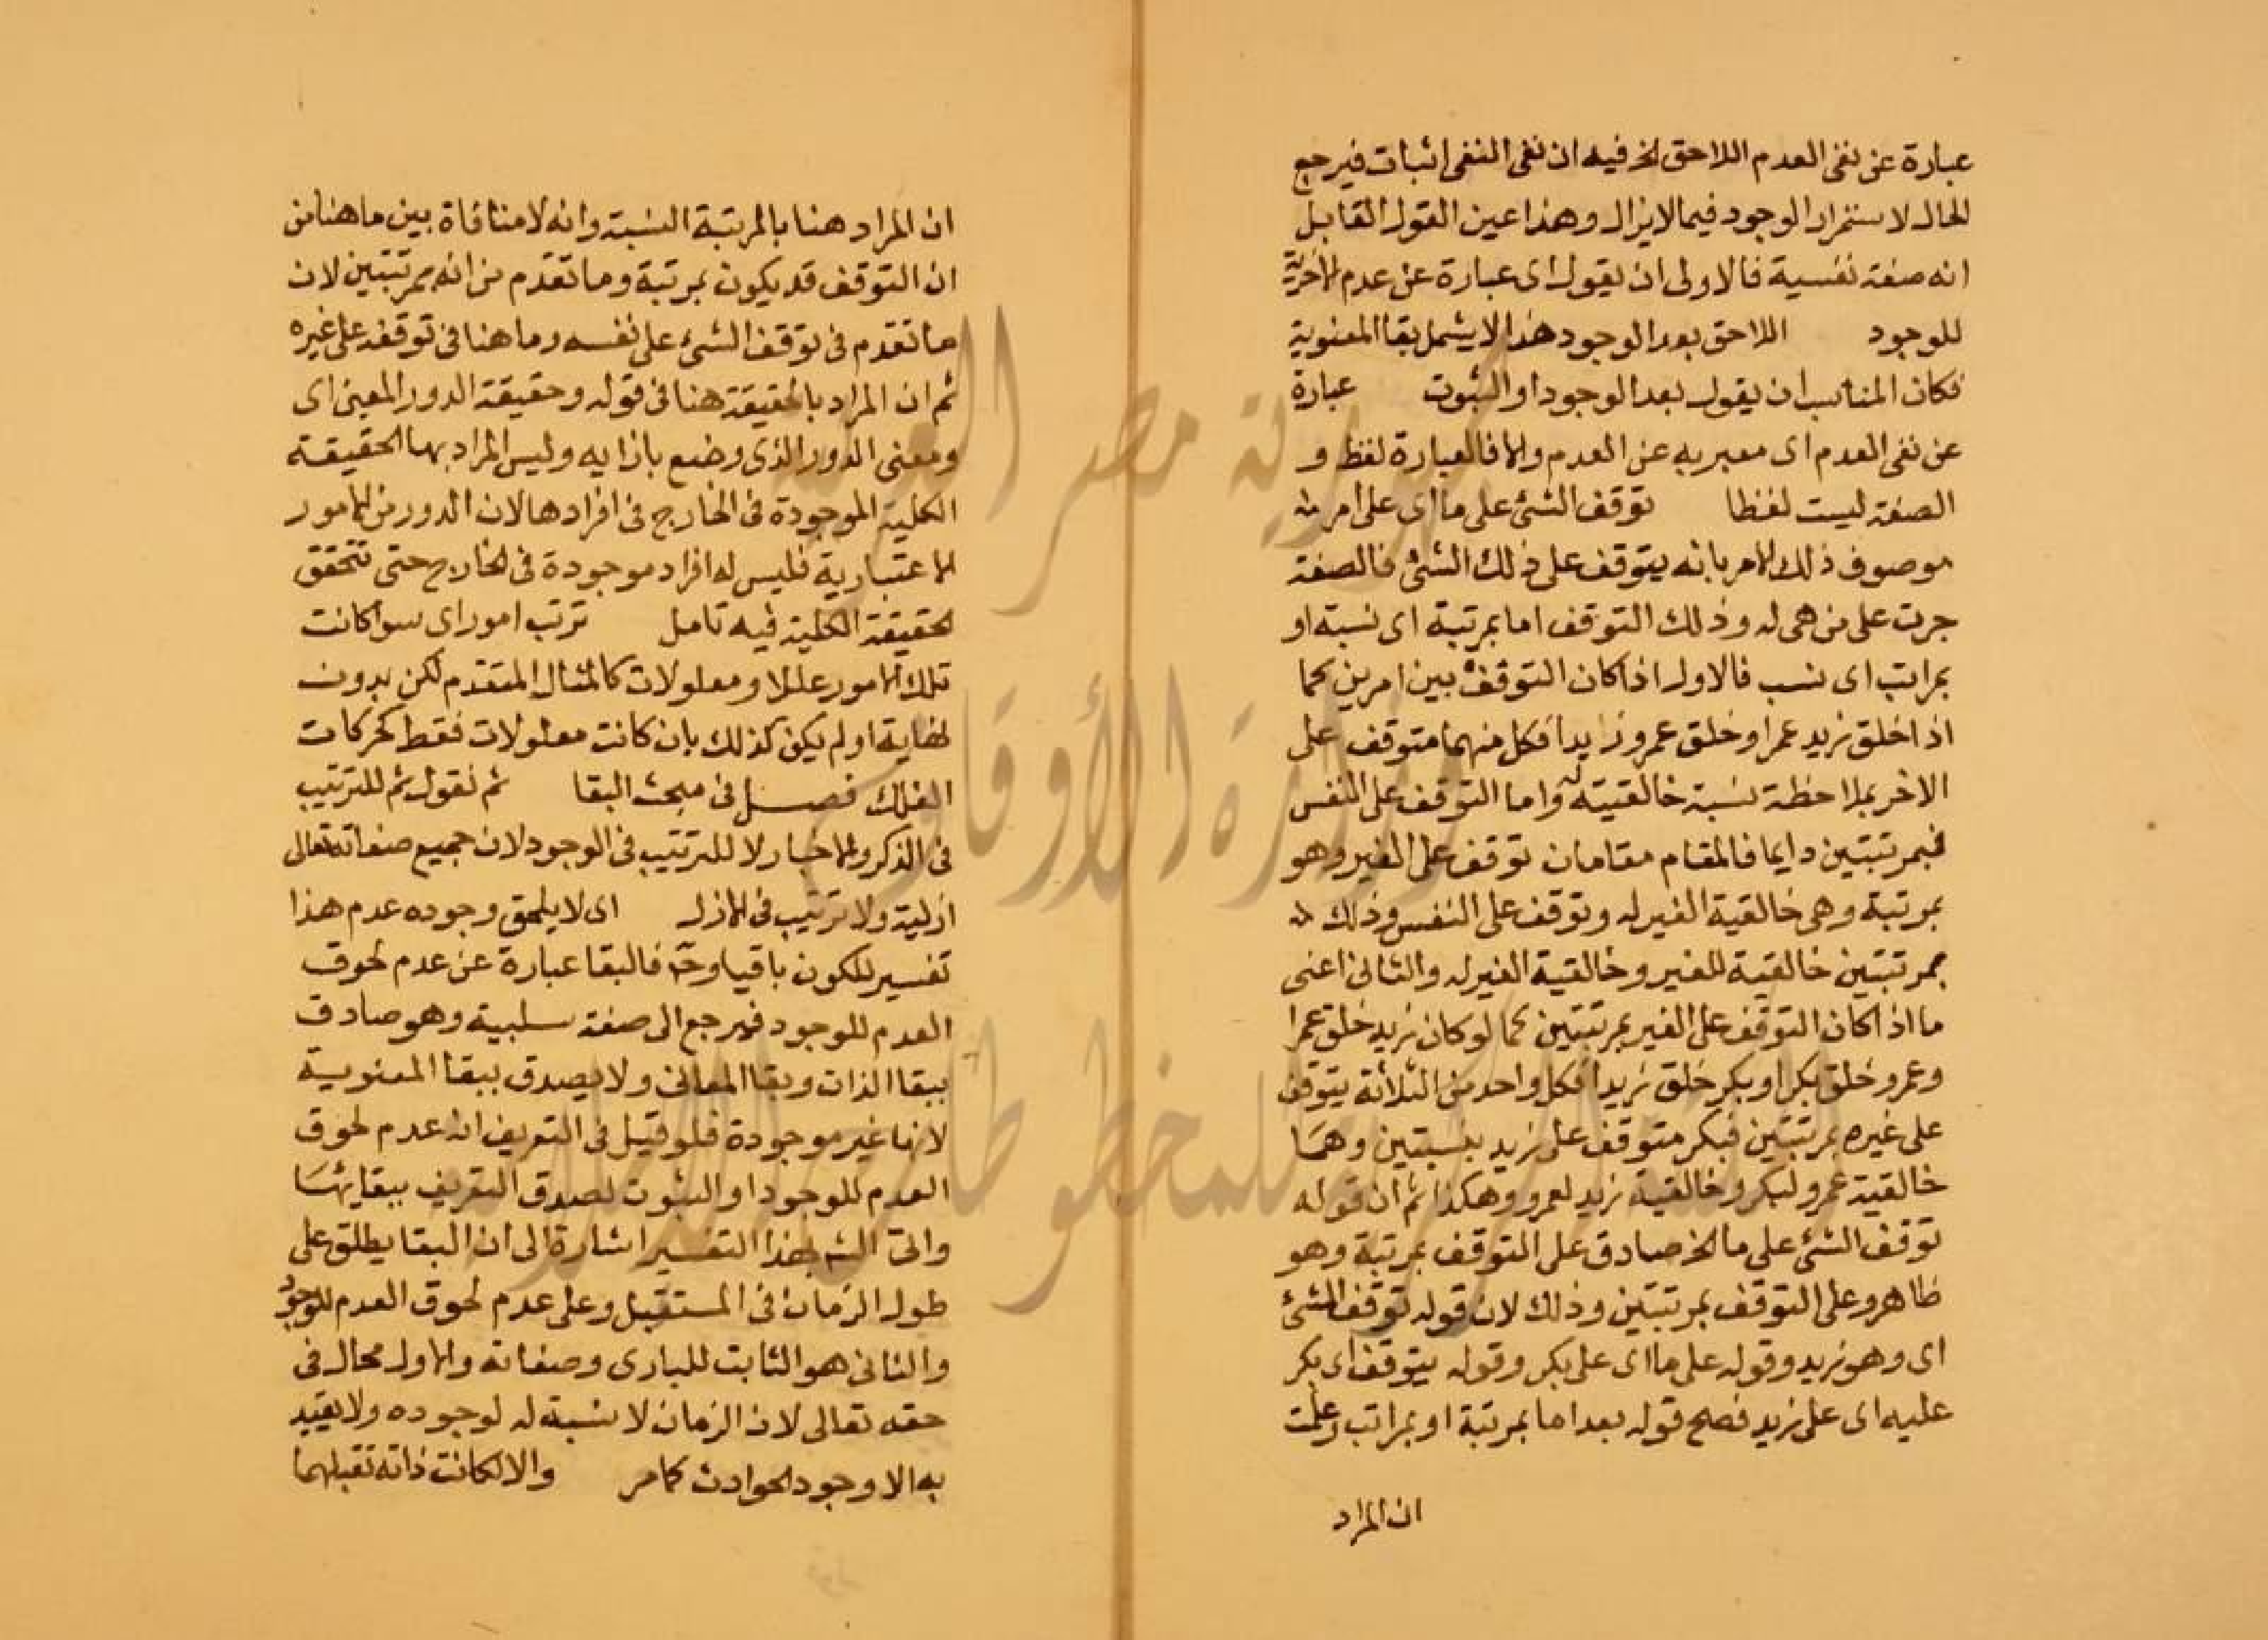 عبارة عن نفى العدم اللاحق الخ فيه ان نفى النفى اثبات فيرجع
الحال لاستمرار الوجود فيما لايزال وهذا عين القول القايل
انه صفة نفسية فالاولى ان يقول اى عبارة عن عدم الاخرية
للوجود اللاحق بعد الوجود هذا لا يشمل بقا المعنوية
فكان المناسب ان يقول بعد الوجود او الثبوت عبارة
عن نفى العدم اى معبر به عن العدم والا فالعبارة لفظ و
الصفة ليست لفظا توقف الشئ على ما اى على امر
موصوف ذلك الامر بانه يتوقف على ذلك الشئ فالصفة
جرت على من هى له وذلك التوقف اما بمرتبة اى نسبة او
بمراتب اى نسب فالاول اذا كان التوقف بين امرين كما
اذا خلق زيد عمرا وخلق عمرو زايدا فكل منهما متوقف على
الاخر بملاحظة نسبة خالقيته له واما التوقف على النفس
فبمرتبتين دايما فالمقام مقامان توقف على الغير وهو
بمرتبة وهى خالقية الغير له وتوقف على النفس وذلك
بمرتبتين خالقية للغير وخالقية الغير له والثانى اعنى
ما اذا كان التوقف على الغير بمرتبتين كما لو كان زيد خلق عمرا
وعمرو خلق بكرا وبكر خلق زيدا فكل واحد من الثلاثة يتوقف
على غيره بمرتبتين فبكر متوقف على زيد بنسبتين وهما
خالقية عمرو لبكر وخالقية زيد لعمرو وهكذا ثم ان قوله
توقف الشئ على ما الخ صادق على التوقف بمرتبة وهو
ظاهر وعلى التوقف بمرتبتين وذلك لان قوله توقف الشئ
اى وهو زيد وقوله على ما اى على بكر وقوله يتوقف اى بكر
عليه اى على زيد فصح قوله بعد اما بمرتبة او بمراتب وعلمت
ان المراد
ان المراد هنا بالمرتبة النسبة وانه لا منافاة بين ما هنا من
ان التوقف قد يكون بمرتبة وما تقدم من انه بمرتبتين لان
ما تقدم فى توقف الشئ على نفسه وما هنا فى توقفه على غيره
ثم ان المراد بالحقيقة هنا فى قوله وحقيقة الدور المعنى اى
ومعنى الدور الذى وضع بازايه وليس المراد بها الحقيقة
الكلية الموجودة فى الخارج فى افرادها لان الدور من الامور
الاعتبارية فليس له افراد موجودة فى الخارج حتى تتحقق
الحقيقة الكلية فيه تامل ترتب امور اى سوا كانت
تلك الامور عللا ومعلولات كالمثال المتقدم لكن بدون
نهاية او لم يكن كذلك بان كانت معلولات فقط كحركات
الفلك فصل فى مبحث البقا ثم نقول ثم للترتيب
فى الذكر والاخبار لا للترتيب فى الوجود لان جميع صفاته تعالى
ازلية ولا ترتيب فى الازل اى لا يلحق وجوده عدم هذا
تفسير للكون باقيا وح فالبقا عبارة عن عدم لحوق
العدم للوجود فيرجع الى صفة سلبية وهو صادق
ببقا الذات وبقا المعانى ولا يصدق ببقا المعنوية
لانها غير موجودة فلو قيل فى التعريف انه عدم لحوق
العدم للوجود او الثبوت لصدق التعريف ببقايها
واتى الشم بهذا التفسير اشارة الى ان البقا يطلق على
طول الزمان فى المستقبل وعلى عدم لحوق العدم للوجود
والثانى هو الثابت للبارى وصفاته والاول محال فى
حقه تعالى لان الزمان لا نسبة له لوجوده ولا يقيد
به الا وجود الحوادث كما مر والا لكانت ذاته تقبلهما